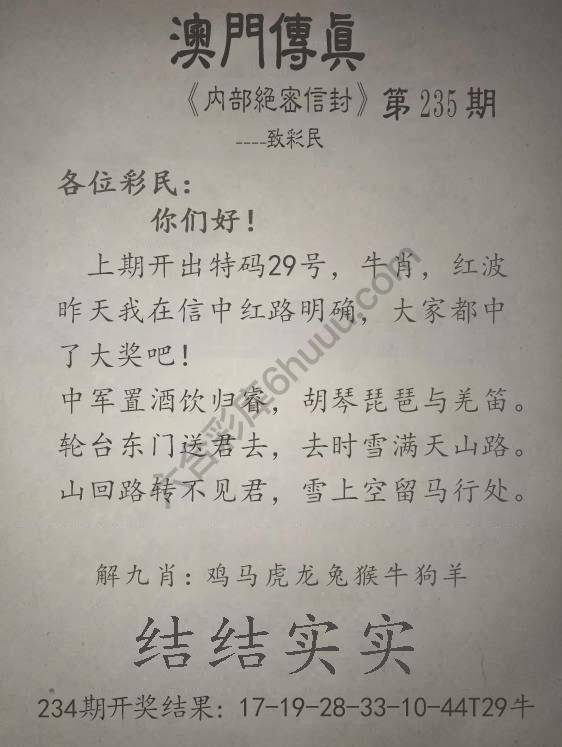 澳門傳真
《内部絕密信封》第235期
----致彩民
各位彩民：
你们好！
上期开出特码29号，牛肖，红波
昨天我在信中红路明确，大家都中
了大奖吧！
中军置酒饮归睿，胡琴琵琶与羌笛。
轮台东门送君去，去时雪满天山路。
山回路转不见君，雪上空留马行处。
解九肖：鸡马虎龙兔猴牛狗羊
结结实实
234期开奖结果：17-19-28-33-10-44T29牛
六合彩库6huuu.com